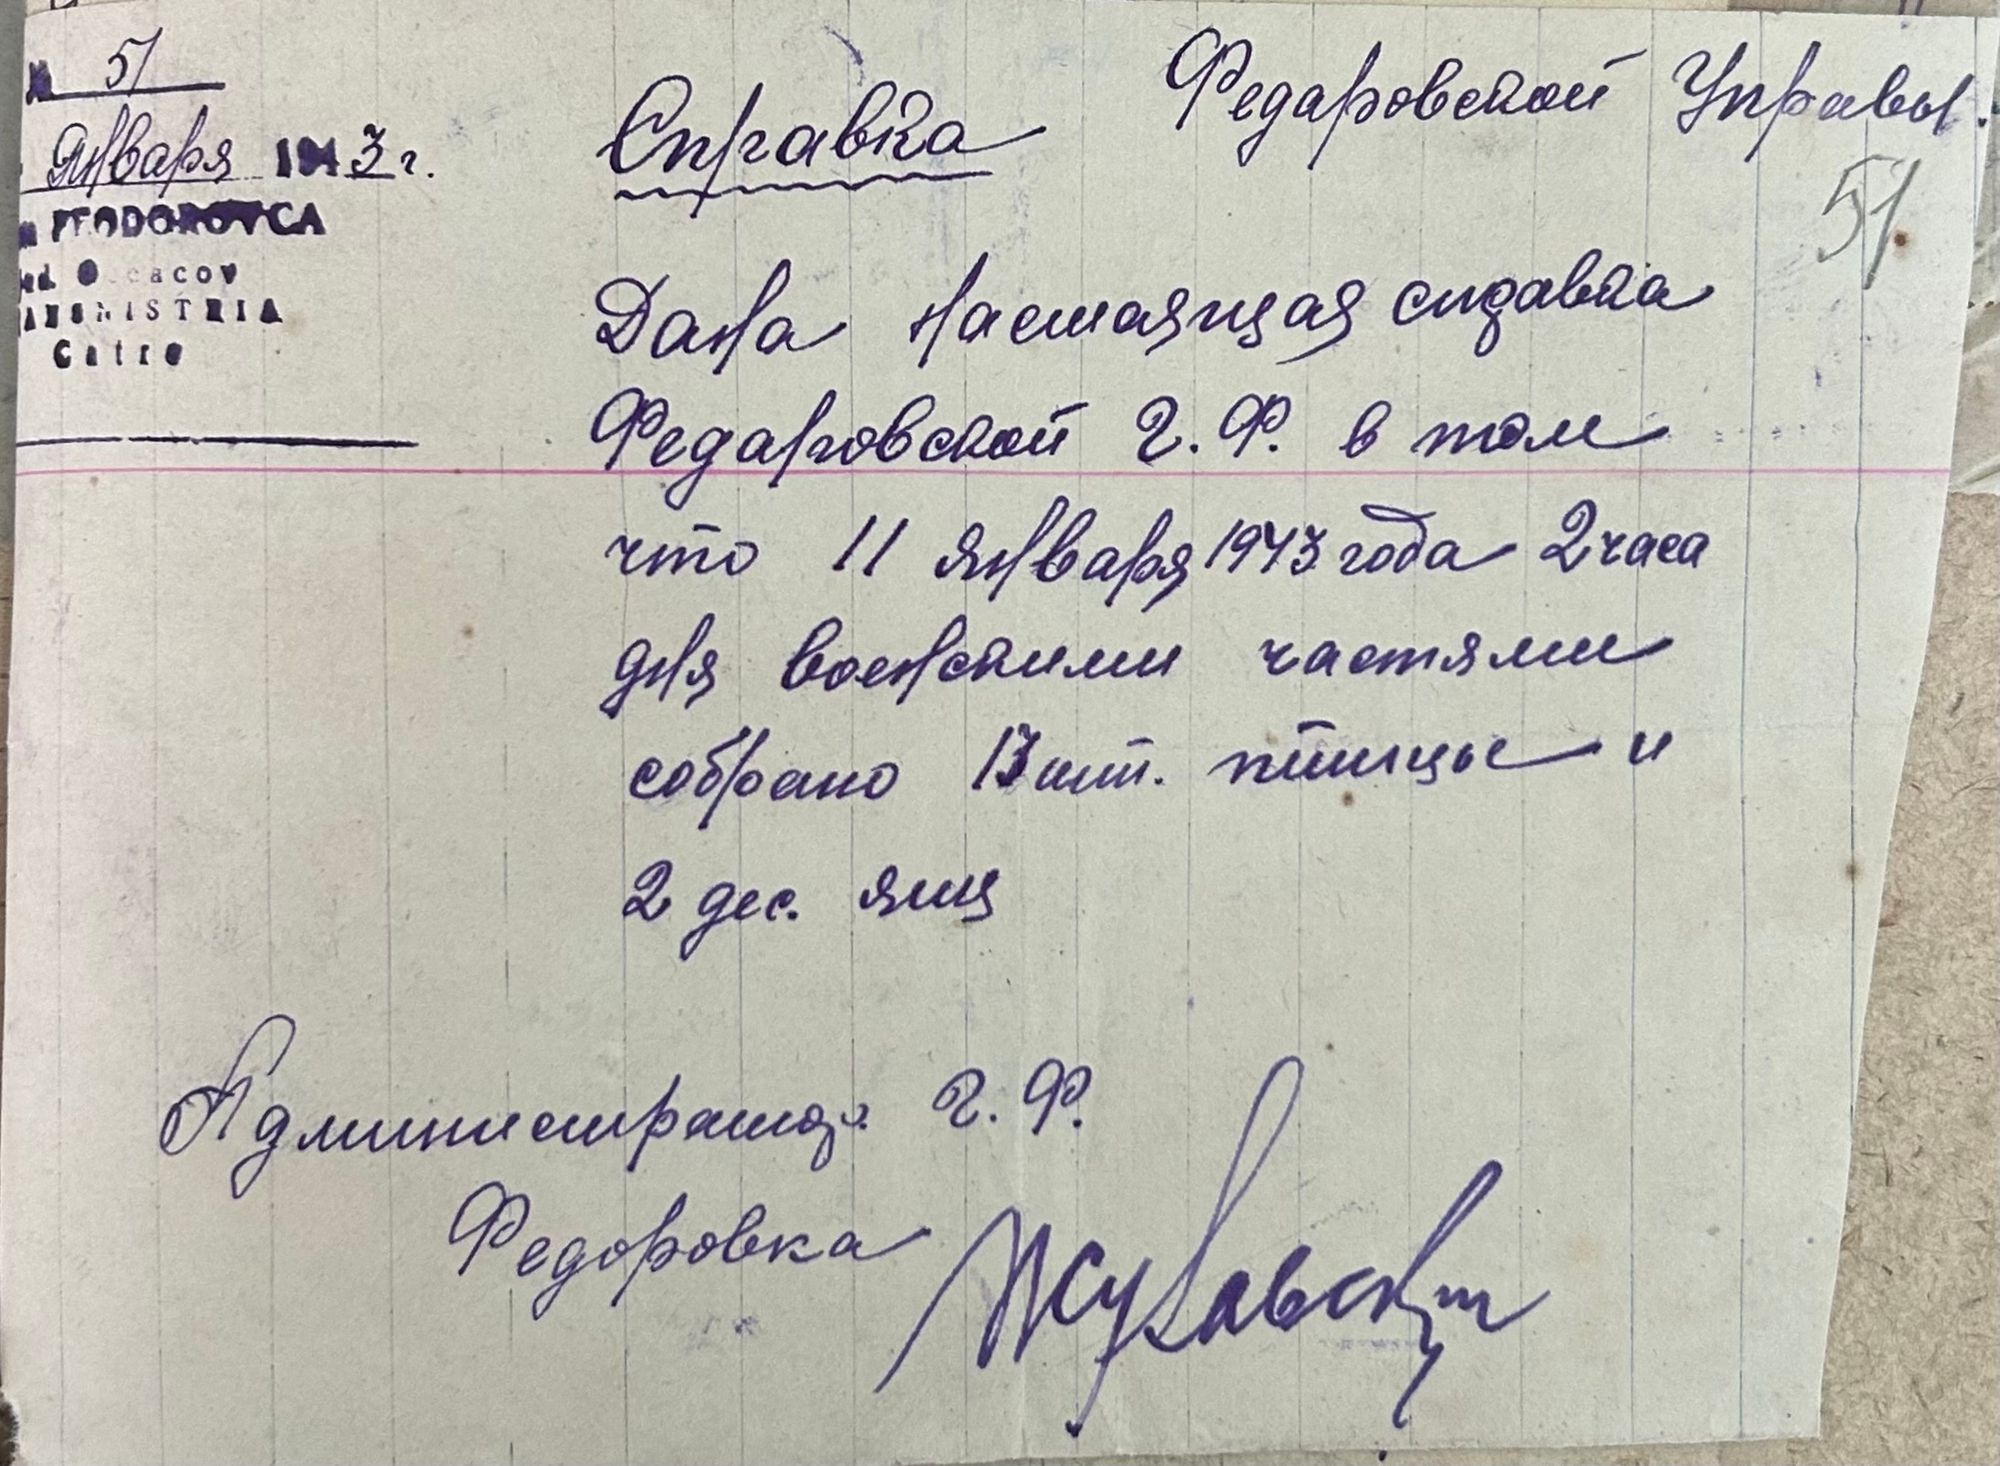 № 51
Января 1943 г.
FEODOROVCA
Catre
Справка
Федаровской Управы.
51
Дана настаящая справка
Федаровской Г. Ф. в том
что 11 января 1943 года 2 часа
дня военскими частями
собрано 13 шт. птицы и
2 дес. яиц
Администратор. Г. Ф.
Федоровка